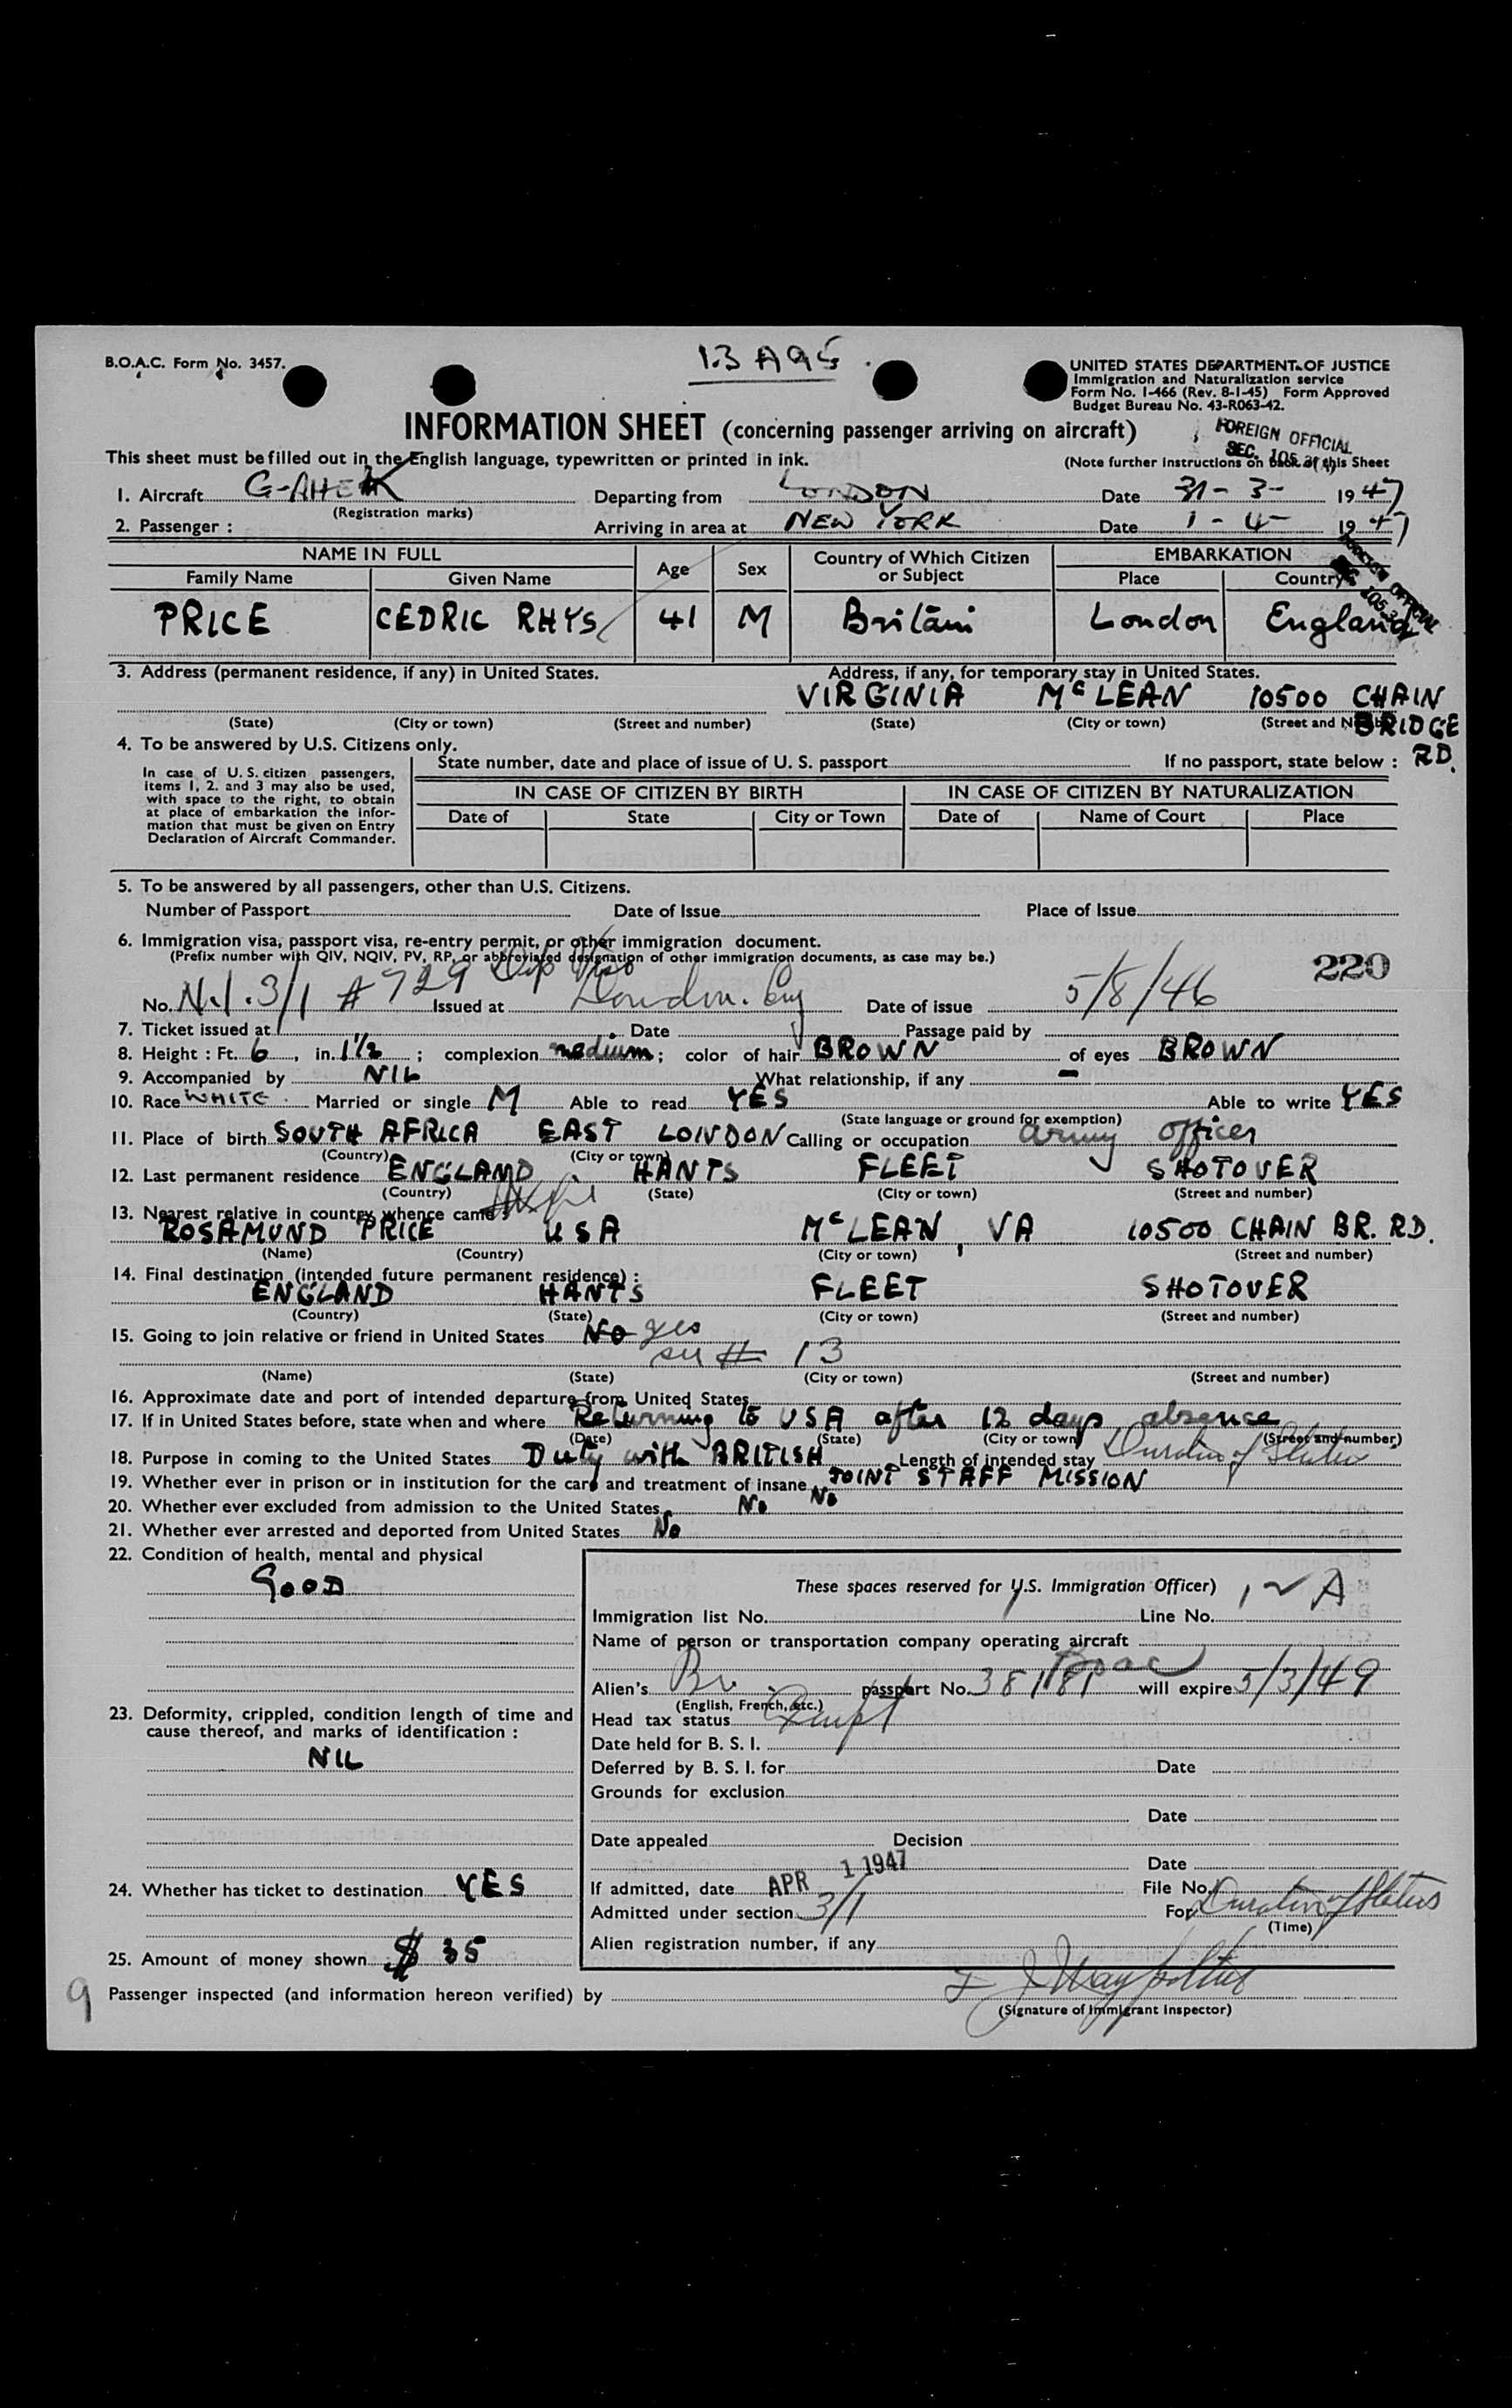 13 A95
B.O.A.C. Form No. 3457.
UNITED STATES DEPARTMENT OF JUSTICE
Immigration and Naturalization service
Form No. I-466 (Rev. 8-1-45) Form Approved
Budget Bureau No. 43-R063-42.
INFORMATION SHEET (concerning passenger arriving on aircraft)
FOREIGN OFFICIAL
SEC. 105.3
This sheet must be filled out in the English language, typewritten or printed in ink.
(Note further instructions on back of this Sheet
1. Aircraft G-AHEK Departing from LONDON Date 31-3- 1947
(Registration marks)
2. Passenger : Arriving in area at NEW YORK Date 1-4- 1947
NAME IN FULL Age Sex Country of Which Citizen or Subject EMBARKATION
Family Name Given Name Place Country
FOREIGN OFFICIAL
PRICE CEDRIC RHYS 41 M Britain London England
3. Address (permanent residence, if any) in United States. Address, if any, for temporary stay in United States.
VIRGINIA McLEAN 10500 CHAIN BRIDGE RD.
(State) (City or town) (Street and number) (State) (City or town) (Street and Number)
4. To be answered by U.S. Citizens only.
State number, date and place of issue of U. S. passport If no passport, state below :
In case of U. S. citizen passengers,
items 1, 2. and 3 may also be used,
with space to the right, to obtain
at place of embarkation the infor-
mation that must be given on Entry
Declaration of Aircraft Commander.
IN CASE OF CITIZEN BY BIRTH IN CASE OF CITIZEN BY NATURALIZATION
Date of State City or Town Date of Name of Court Place
5. To be answered by all passengers, other than U.S. Citizens.
Number of Passport Date of Issue Place of Issue
6. Immigration visa, passport visa, re-entry permit, or other immigration document.
(Prefix number with QIV, NQIV, PV, RP, or abbreviated designation of other immigration documents, as case may be.)
220
No. N.I. 3/1 # 729 Dip Visa Issued at London. Eng Date of issue 5/8/46
7. Ticket issued at Date Passage paid by
8. Height : Ft. 6, in. 1½ ; complexion medium ; color of hair BROWN of eyes BROWN
9. Accompanied by NIL What relationship, if any -
10. Race WHITE Married or single M Able to read YES Able to write YES
(State language or ground for exemption)
11. Place of birth SOUTH AFRICA EAST LONDON Calling or occupation army officer
(Country) (City or town)
12. Last permanent residence ENGLAND HANTS FLEET SHOTOVER
(Country) (State) (City or town) (Street and number)
13. Nearest relative in country whence came :
ROSAMUND PRICE USA McLEAN, VA 10500 CHAIN BR. RD.
(Name) (Country) (City or town) (Street and number)
14. Final destination (intended future permanent residence) :
ENGLAND HANTS FLEET SHOTOVER
(Country) (State) (City or town) (Street and number)
15. Going to join relative or friend in United States No yes
see # 13
(Name) (State) (City or town) (Street and number)
16. Approximate date and port of intended departure from United States
17. If in United States before, state when and where Returning to USA after 12 days absence
(Date) (State) (City or town) (Street and number)
18. Purpose in coming to the United States Duty with BRITISH Length of intended stay Duration of Status
JOINT STAFF MISSION
19. Whether ever in prison or in institution for the care and treatment of insane No
20. Whether ever excluded from admission to the United States No
21. Whether ever arrested and deported from United States No
22. Condition of health, mental and physical
GOOD
These spaces reserved for U.S. Immigration Officer)
Immigration list No. Line No.
Name of person or transportation company operating aircraft
Boac
Alien's Br. passport No. 38181 will expire 5/3/49
(English, French, etc.)
Head tax status Exempt
Date held for B. S. I.
Deferred by B. S. I. for Date
Grounds for exclusion
Date
Date appealed Decision
Date
If admitted, date APR 1 1947 File No.
Admitted under section 3/1 For Duration of Status
(Time)
Alien registration number, if any
23. Deformity, crippled, condition length of time and
cause thereof, and marks of identification :
NIL
24. Whether has ticket to destination YES
25. Amount of money shown $ 35
9
Passenger inspected (and information hereon verified) by
(Signature of Immigrant Inspector)